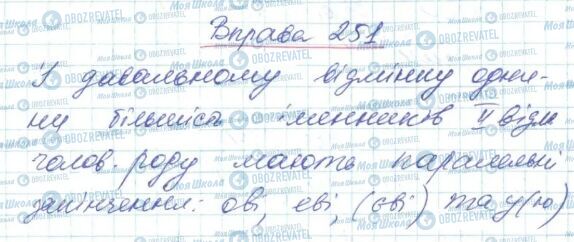 Вправа 251
У давальному відмінку одни-
ни більшість іменників II відм
чолов. роду мають паралельні
закінчення: ові, еві, (єві) та у(ю)